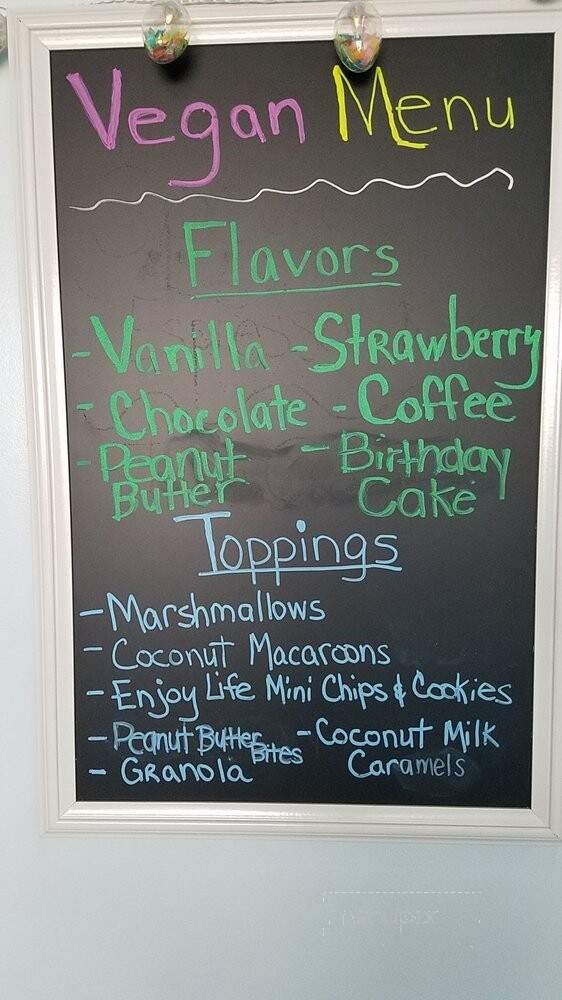 Vegan Menu
Flavors
- Vanilla - Strawberry
- Chocolate - Coffee
- Peanut Butter - Birthday Cake
Toppings
- Marshmallows
- Coconut Macaroons
- Enjoy Life Mini Chips & Cookies
- Peanut Butter Bites - Coconut Milk Caramels
- Granola